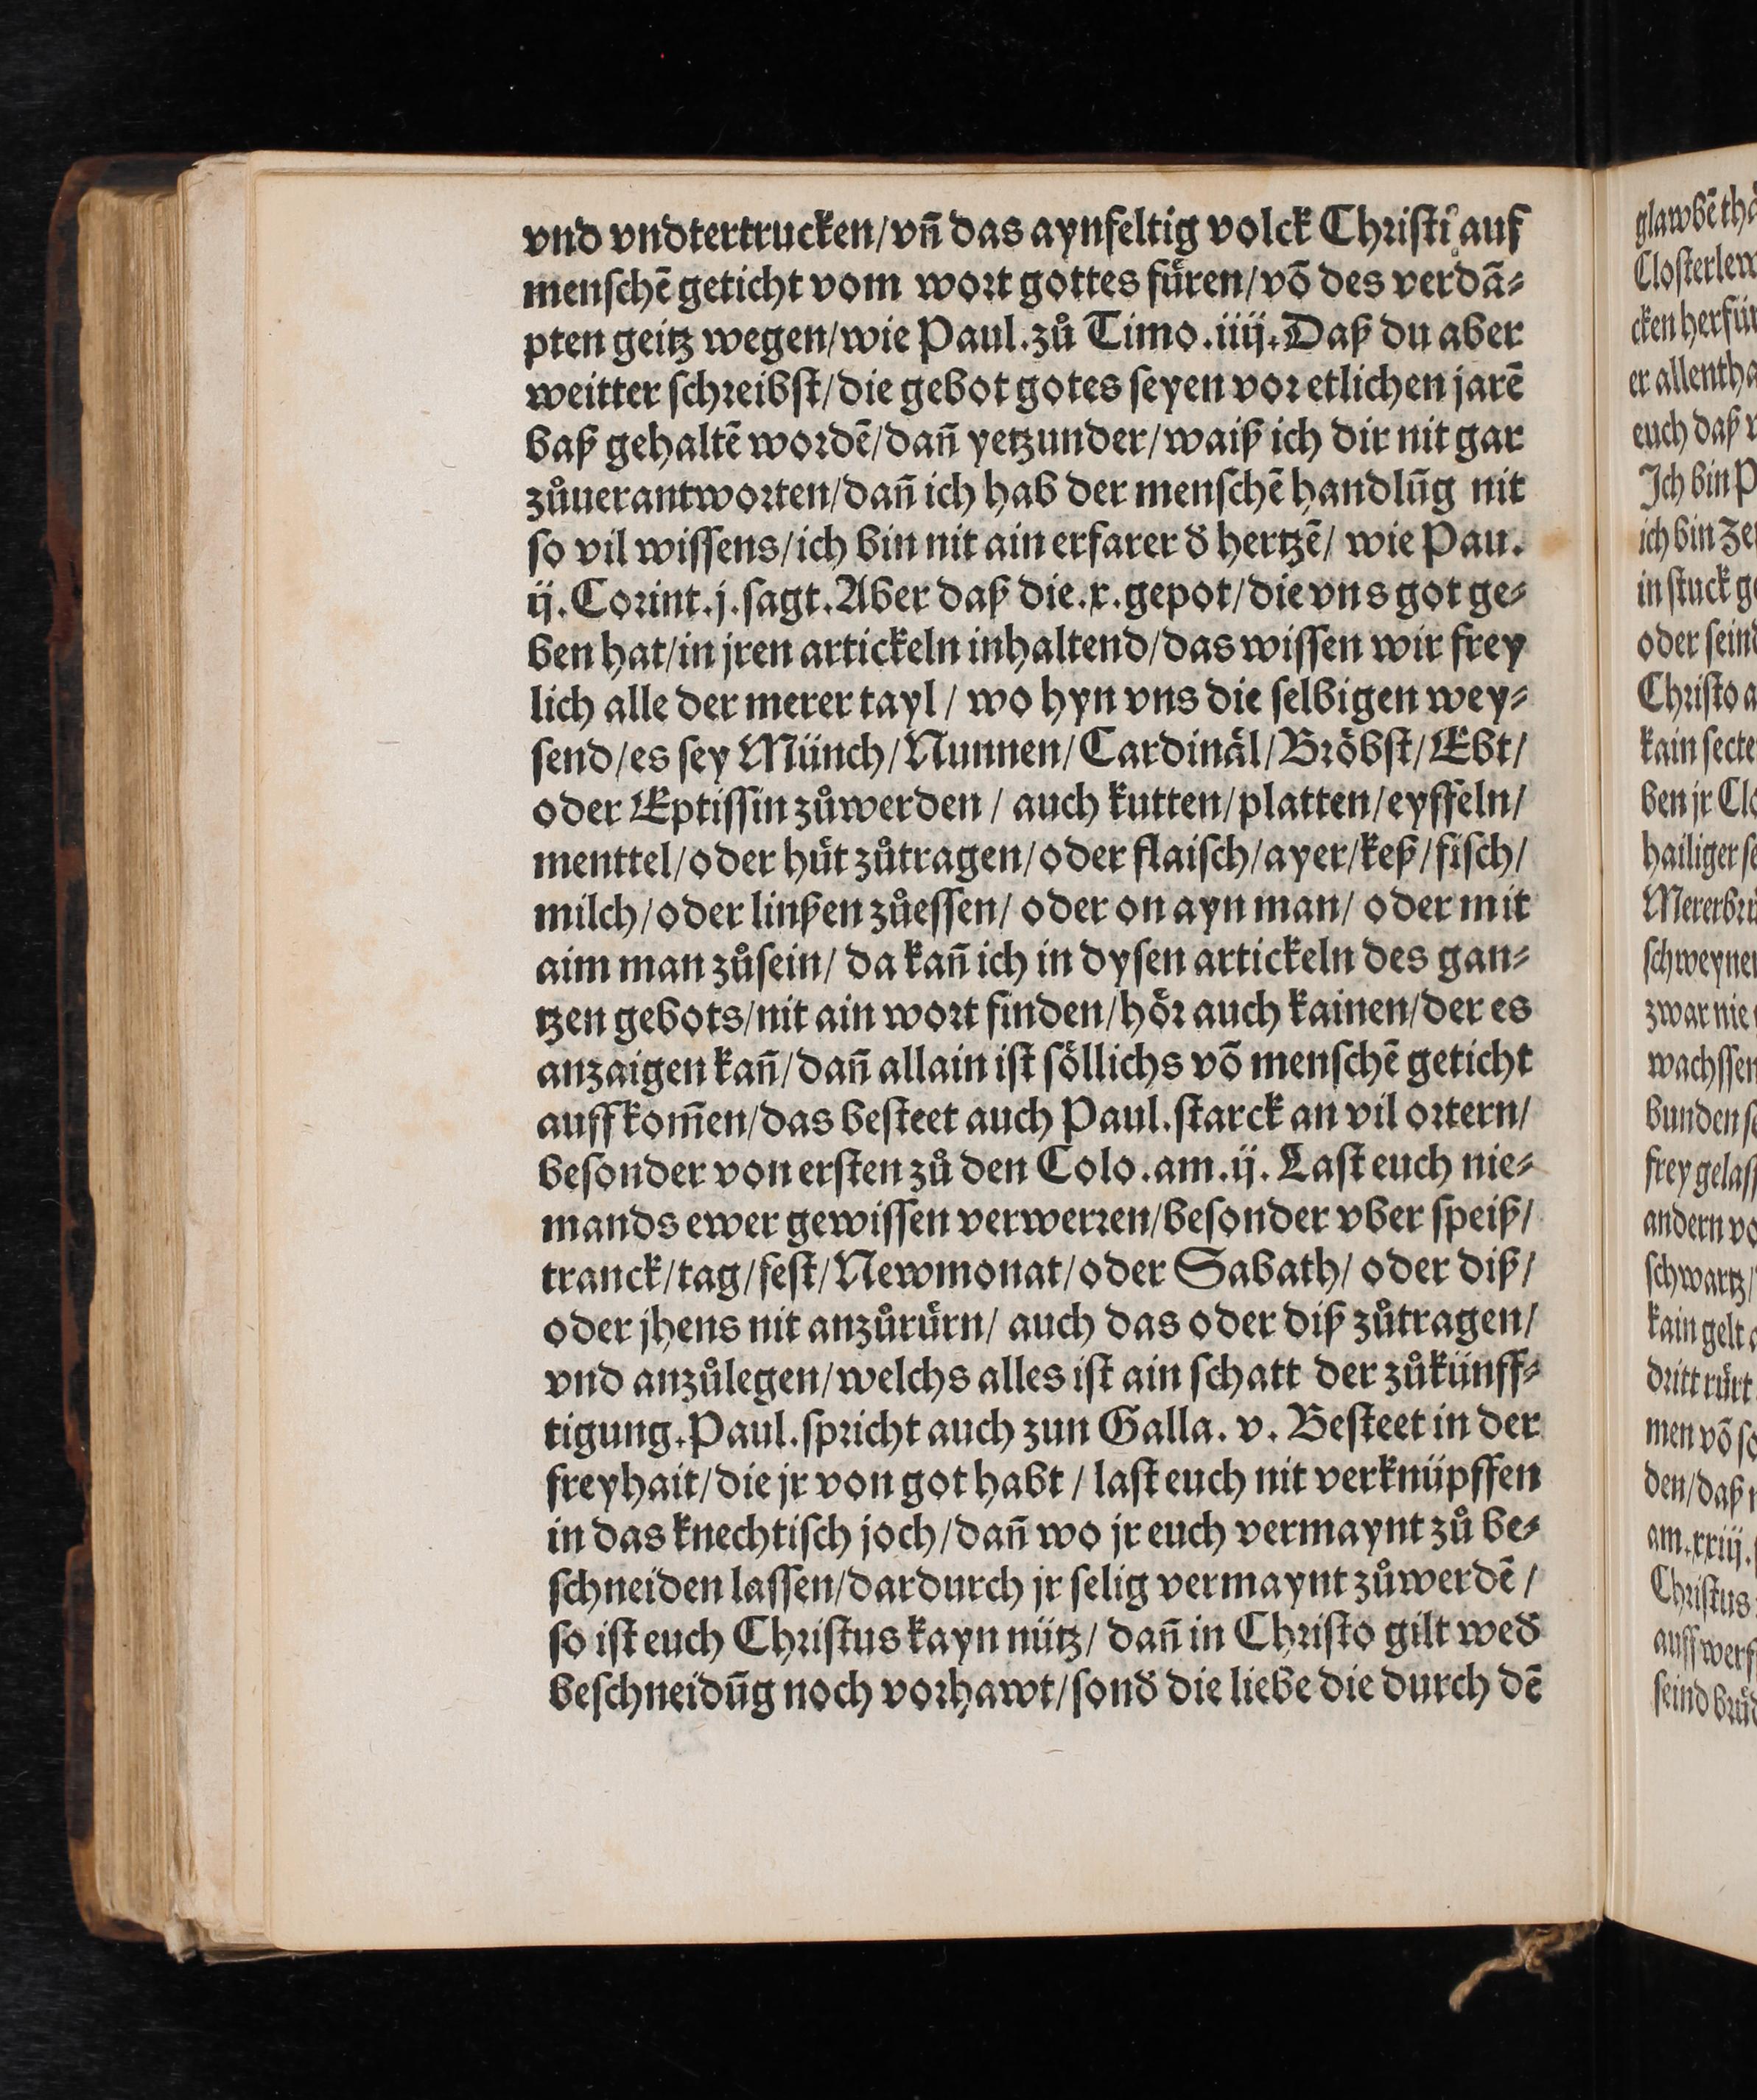 vnd vndtertrucken/vn̄ das aynfeltig volck Chriſti auf
menſchē geticht vom wort gottes fuͤren/vō des verdā⸗
pten geitz wegen/wie Paul.zů Timo.iiij.Daß du aber
weitter ſchreibſt/die gebot gotes ſeyen vor etlichen jarē
baß gehaltē wordē/dan̄ yetzunder/waiß ich dir nit gar
zůuerantworten/dan̄ ich hab der menſchē handlūg nit
ſo vil wiſſens/ich bin nit ain erfarer d̕ hertzē/ wie Pau.
ij.Corint.j.ſagt.Aber daß die.x.gepot/die vns got ge⸗
ben hat/in jren artickeln inhaltend/das wiſſen wir frey
lich alle der merer tayl/ wo hyn vns die ſelbigen wey⸗
ſend/es ſey Münch/Nunnen/Cardinaͤl/Broͤbſt/Ebt/
oder Eptiſſin zůwerden/ auch kutten/platten/eyffeln/
menttel/oder huͤt zůtragen/oder flaiſch/ayer/keß/fiſch/
milch/oder linßen zůeſſen/ oder on ayn man/ oder mit
aim man zůſein/ da kan̄ ich in dyſen artickeln des gan⸗
tzen gebots/nit ain wort finden/hoͤr auch kainen/der es
anzaigen kan̄/dan̄ allain iſt ſoͤllichs vō menſchē geticht
auff kom̄en/das beſteet auch Paul.ſtarck an vil ortern/
beſonder von erſten zů den Colo.am.ij. Laſt euch nie⸗
mands ewer gewiſſen verwerren/beſonder vber ſpeiß/
tranck/tag/feſt/Newmonat/oder Sabath/ oder diß/
oder jhens nit anzůruͤrn/ auch das oder diß zůtragen/
vnd anzůlegen/welchs alles iſt ain ſchatt der zůkünff⸗
tigung.Paul.ſpricht auch zun Galla. v. Beſteet in der
freyhait/die jr von got habt/ laſt euch nit verknüpffen
in das knechtiſch joch/dan̄ wo jr euch vermaynt zů be⸗
ſchneiden laſſen/dardurch jr ſelig vermaynt zůwerdē/
ſo iſt euch Chriſtus kayn nütz/ dan̄ in Chriſto gilt wed̕
beſchneidūg noch vorhawt/ſond̕ die liebe die durch dē
glawbē
Cloſterlew
cken
er
euch daß
Ich bin
ich bin
in ſtuck
oder
Chriſto
kain ſecte
ben jr
hailiger
ſchweyner
zwar nie
wachſſen
bunden
frey
andern
ſchwartz/
kain gelt
dritt ruͤrt
men vō
den/daß
am.xxiij.
Chriſtus
auff
ſeind